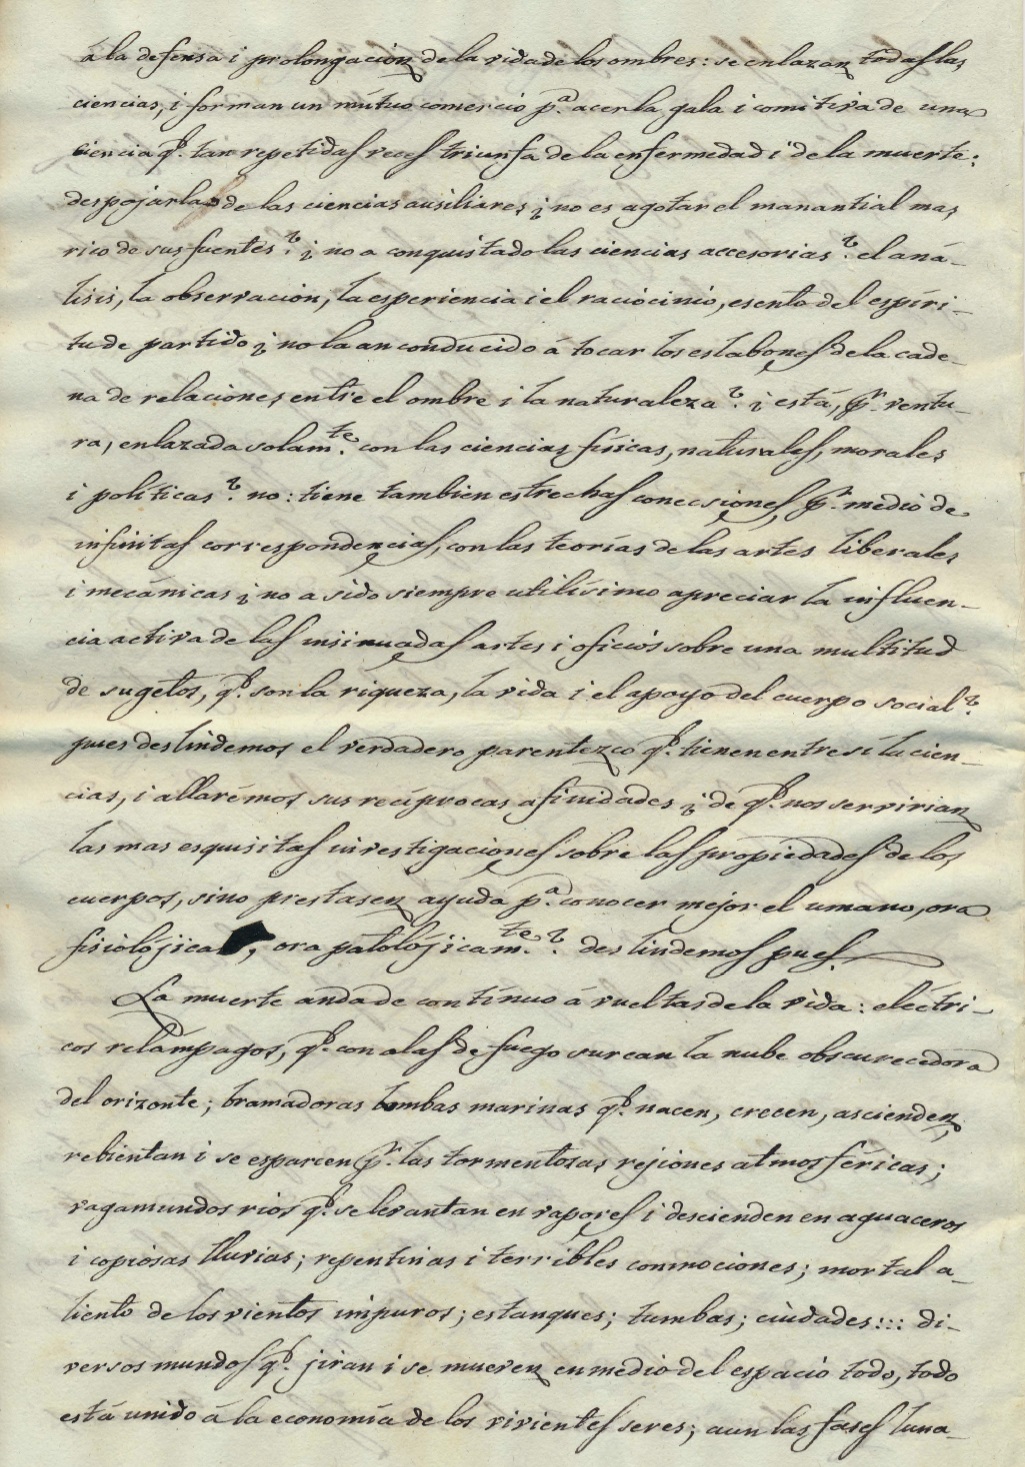 á la defensa i prolongación de la vida de los ombres: se enlazan todas las
ciencias, i forman un mútuo comercio pª. acerla gala i comitiva de una
ciencia qe. tan repetidas veces triunfa de la enfermedad i de la muerte:
despojarla de las ciencias ausiliares ¿no es agotar el manantial mas
rico de sus fuentes? ¿no a conquistado las ciencias accesorias? el aná-
lisis, la observacion, la esperiencia i el raciocinio, esento del espíri-
tu de partido ¿no la an conducido á tocar los eslabones de la cade-
na de relaciones entre el ombre i la naturaleza? ¿está, pr. ventu-
ra, enlazada solamte. con las ciencias físicas, naturales, morales
i políticas? no: tiene tambien estrechas conecsiones pr. medio de
infinitas correspondencias, con las teorías de las artes liberales
i mecánicas ¿no a sido siempre utilísimo apreciar la influen-
cia activa de las insinuadas artes i oficios sobre una multitud
de sugetos, qe. son la riqueza, la vida i el apoyo del cuerpo social?
pues deslindemos el verdadero parentezco qe. tienen entre sí la cien-
cias, i allarémos sus recíprocas afinidades ¿de qe. nos servirian
las mas esquisitas investigaciones sobre las propiedades de los
cuerpos, sino prestasen ayuda pª. conocer mejor el umano, ora
fisiolójica, ora patolójicamte.? deslindemos pues.
La muerte anda de contínuo á vueltas de la vida: eléctri-
cos relámpagos, qe. con alas de fuego surcan la nube obscurecedora
del orizonte; bramadoras bombas marinas qe. nacen, crecen, ascienden,
rebientan i se esparcen pr. las tormentosas rejiones atmosféricas;
vagamundos rios qe. se levantan en vapores i descienden en aguaceros
i copiosas lluvias; repentinas i terribles conmociones; mortal a-
liento de los vientos impuros; estanques; tumbas; ciudades::: di-
versos mundos qe. jiran i se mueven en medio del espacio todo, todo
está unido á la economía de los vivientes seres; aun las fases luna-